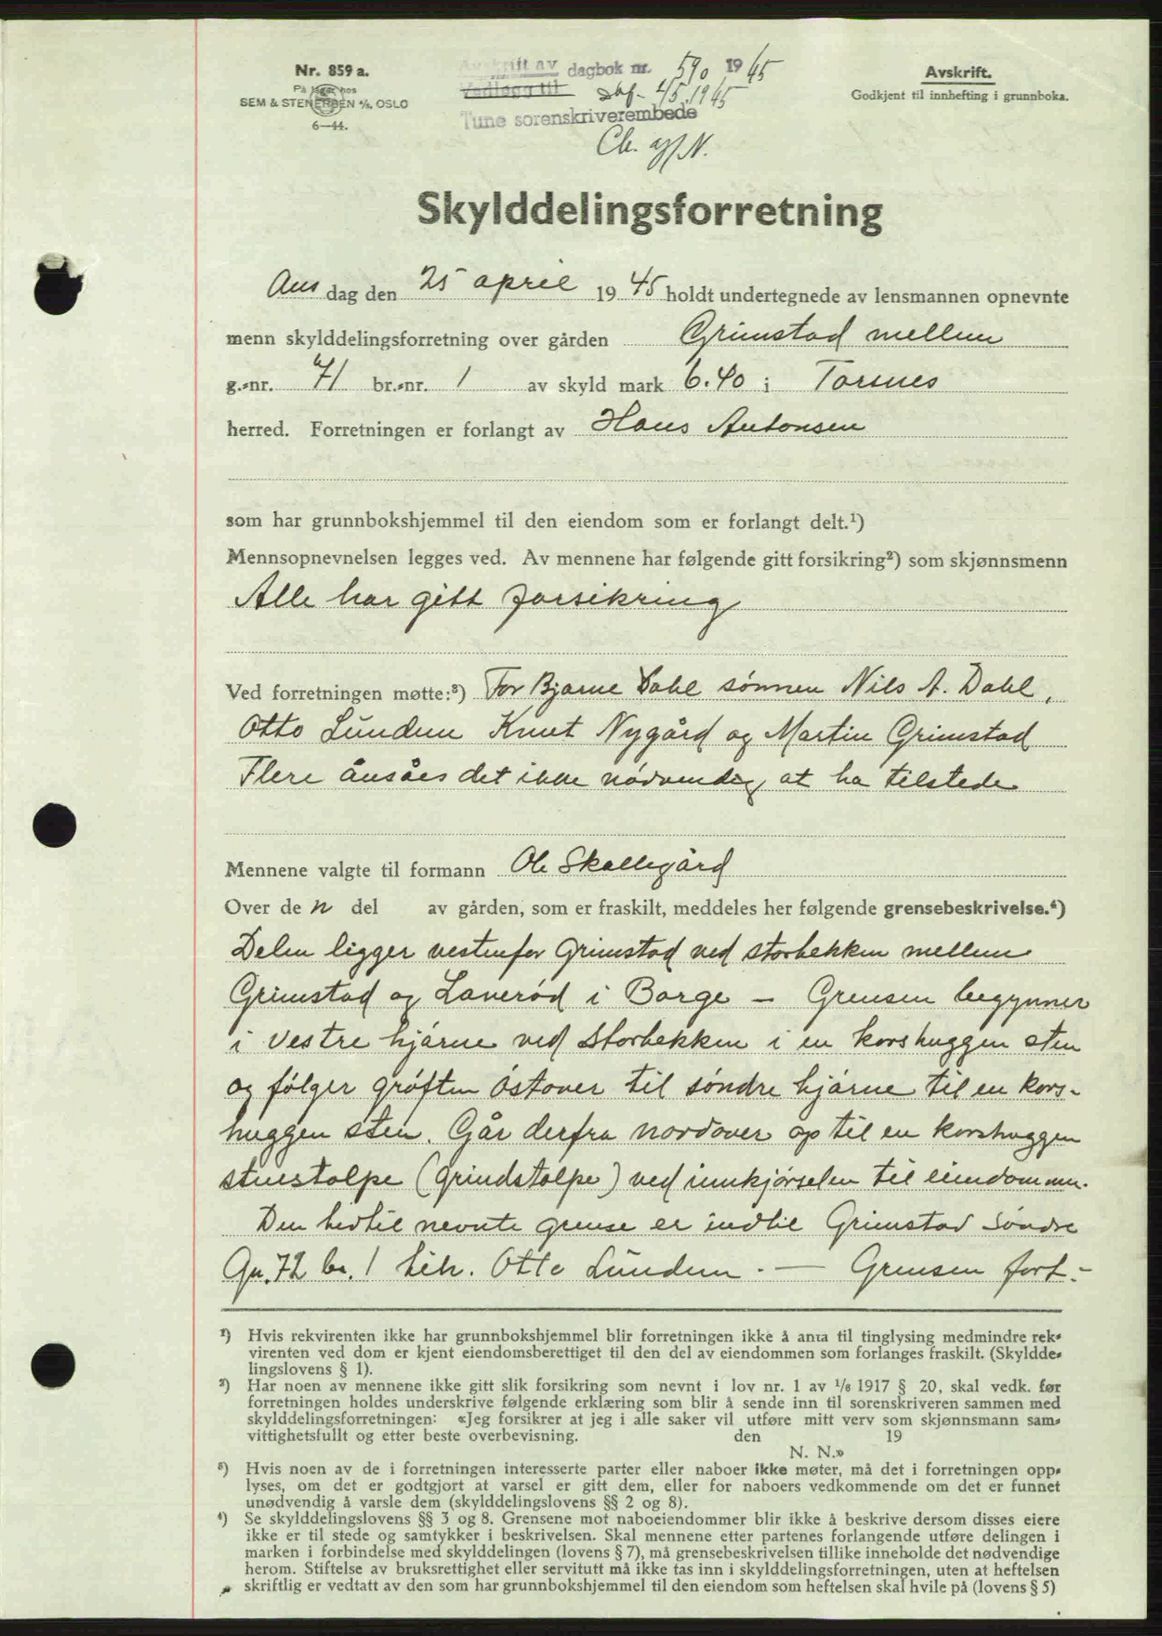 Nr. 859 a.
På lager hos
SEM & STENERSEN A/S, OSLO
6—44.
Avskrift av dagbok nr. 590 1945
Vedlegg til
Dbf. 4/5 1945
Tune sorenskriverembede
Avskrift.
Godkjent til innhefting i grunnboka.
Skylddelingsforretning
Ons dag den 25 april 1945 holdt undertegnede av lensmannen opnevnte
menn skylddelingsforretning over gården Grimstad mellem
g.-nr. 71 br.-nr. 1 av skyld mark 6.40 i Torsnes
herred. Forretningen er forlangt av Hans Antonsen
som har grunnbokshjemmel til den eiendom som er forlangt delt.¹)
Mennsopnevnelsen legges ved. Av mennene har følgende gitt forsikring²) som skjønnsmenn
Alle har gitt forsikring
Ved forretningen møtte:³) For Bjarne Dahl sønnen Nils A. Dahl,
Otto Lunden Knut Nygård og Martin Grimstad
Flere ånsåes det ikke nødvendig at ha tilstede
Mennene valgte til formann Ole Skallegård
Over de n del av gården, som er fraskilt, meddeles her følgende grensebeskrivelse.⁴)
Delen ligger vestenfor Grimstad ved storbekken mellem
Grimstad og Lanerød i Borge — Grensen begynner
i vestre hjørne ved storbekken i en korshuggen sten
og følger grøften østover til søndre hjørne til en kors-
huggen sten. Går derfra nordover op til en korshuggen
stenstolpe (grindstolpe) ved innkjørselen til eiendommen.
Den hertil nevnte grense er indtil Grimstad søndre
Gn. 72 br. 1 tilh. Otto Lunden. — Grensen fort.-
¹) Hvis rekvirenten ikke har grunnbokshjemmel blir forretningen ikke å anta til tinglysing medmindre rek-
virenten ved dom er kjent eiendomsberettiget til den del av eiendommen som forlanges fraskilt. (Skyldde-
lingslovens § 1).
²) Har noen av mennene ikke gitt slik forsikring som nevnt i lov nr. 1 av 1/6 1917 § 20, skal vedk. før
forretningen holdes underskrive følgende erklæring som blir å sende inn til sorenskriveren sammen med
skylddelingsforretningen: «Jeg forsikrer at jeg i alle saker vil utføre mitt verv som skjønnsmann sam-
vittighetsfullt og etter beste overbevisning. den 19
N. N.»
³) Hvis noen av de i forretningen interesserte parter eller naboer ikke møter, må det i forretningen opp-
lyses, om det er godtgjort at varsel er gitt dem, eller for naboers vedkommende om det er funnet
unødvendig å varsle dem (skylddelingslovens §§ 2 og 8).
⁴) Se skylddelingslovens §§ 3 og 8. Grensene mot naboeiendommer blir ikke å beskrive dersom disses eiere
ikke er til stede og samtykker i beskrivelsen. Skal mennene etter partenes forlangende utføre delingen i
marken i forbindelse med skylddelingen (lovens § 7), må grensebeskrivelsen tillike inneholde det nødvendige
herom. Stiftelse av bruksrettighet eller servitutt må ikke tas inn i skylddelingsforretningen, uten at heftelsen
skriftlig er vedtatt av den som har grunnbokshjemmel til den eiendom som heftelsen skal hvile på (lovens § 5)